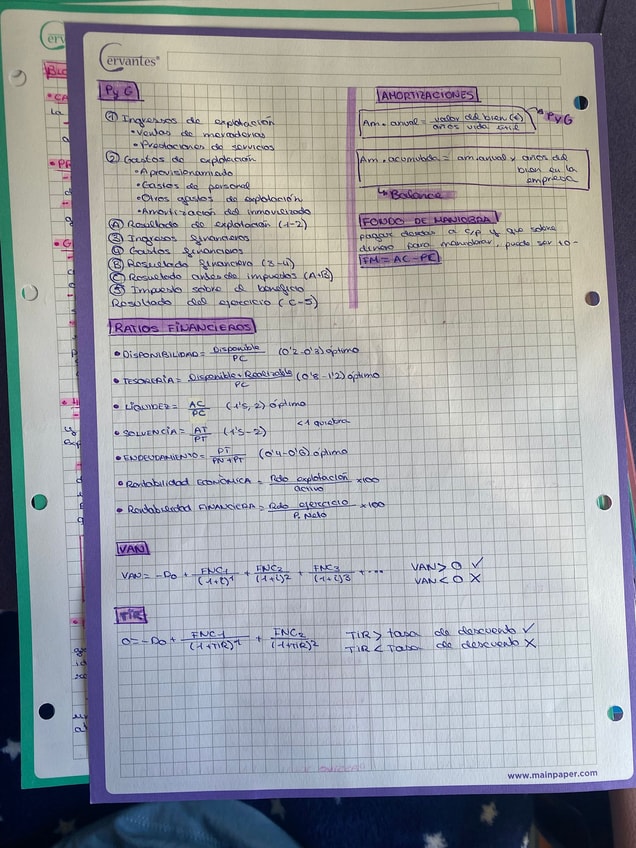 Cervantes®
PyG
① Ingresos de explotación
• Ventas de mercaderías
• Prestaciones de servicios
② Gastos de explotación
• Aprovisionamiento
• Gastos de personal
• Otros gastos de explotación
• Amortización del inmovilizado
Ⓐ Resultado de explotación (1-2)
③ Ingresos financieros
④ Gastos financieros
Ⓑ Resultado financiero (3-4)
Ⓒ Resultado antes de impuestos (A+B)
⑤ Impuesto sobre el beneficio
Resultado del ejercicio (C-5)
AMORTIZACIONES
Am. anual = valor del bien (€) / años vida útil
→ PyG
Am. acumulada = am. anual x años del
bien en la
empresa
↳ Balance
FONDO DE MANIOBRA
pagar deudas a c/p y que sobre
dinero para maniobrar, puede ser + o -
FM = AC - PC
RATIOS FINANCIEROS
• DISPONIBILIDAD = Disponible / PC (0'2-0'3) óptimo
• TESORERÍA = Disponible + Realizable / PC (0'8-1'2) óptimo
• LIQUIDEZ = AC / PC (1'5, 2) óptimo
• SOLVENCIA = AT / PT (1'5-2) <1 quiebra
• ENDEUDAMIENTO = PT / PN+PT (0'4-0'6) óptimo
• Rentabilidad ECONÓMICA = Rdo explotación / activo x100
• Rentabilidad FINANCIERA = Rdo ejercicio / P. Neto x100
VAN
VAN = -Do + FNC1 / (1+i)^1 + FNC2 / (1+i)^2 + FNC3 / (1+i)^3 + ... VAN > 0 ✓
VAN < 0 X
TIR
0 = -Do + FNC1 / (1+TIR)^1 + FNC2 / (1+TIR)^2 TIR > tasa de descuento ✓
TIR < Tasa de descuento X
www.mainpaper.com